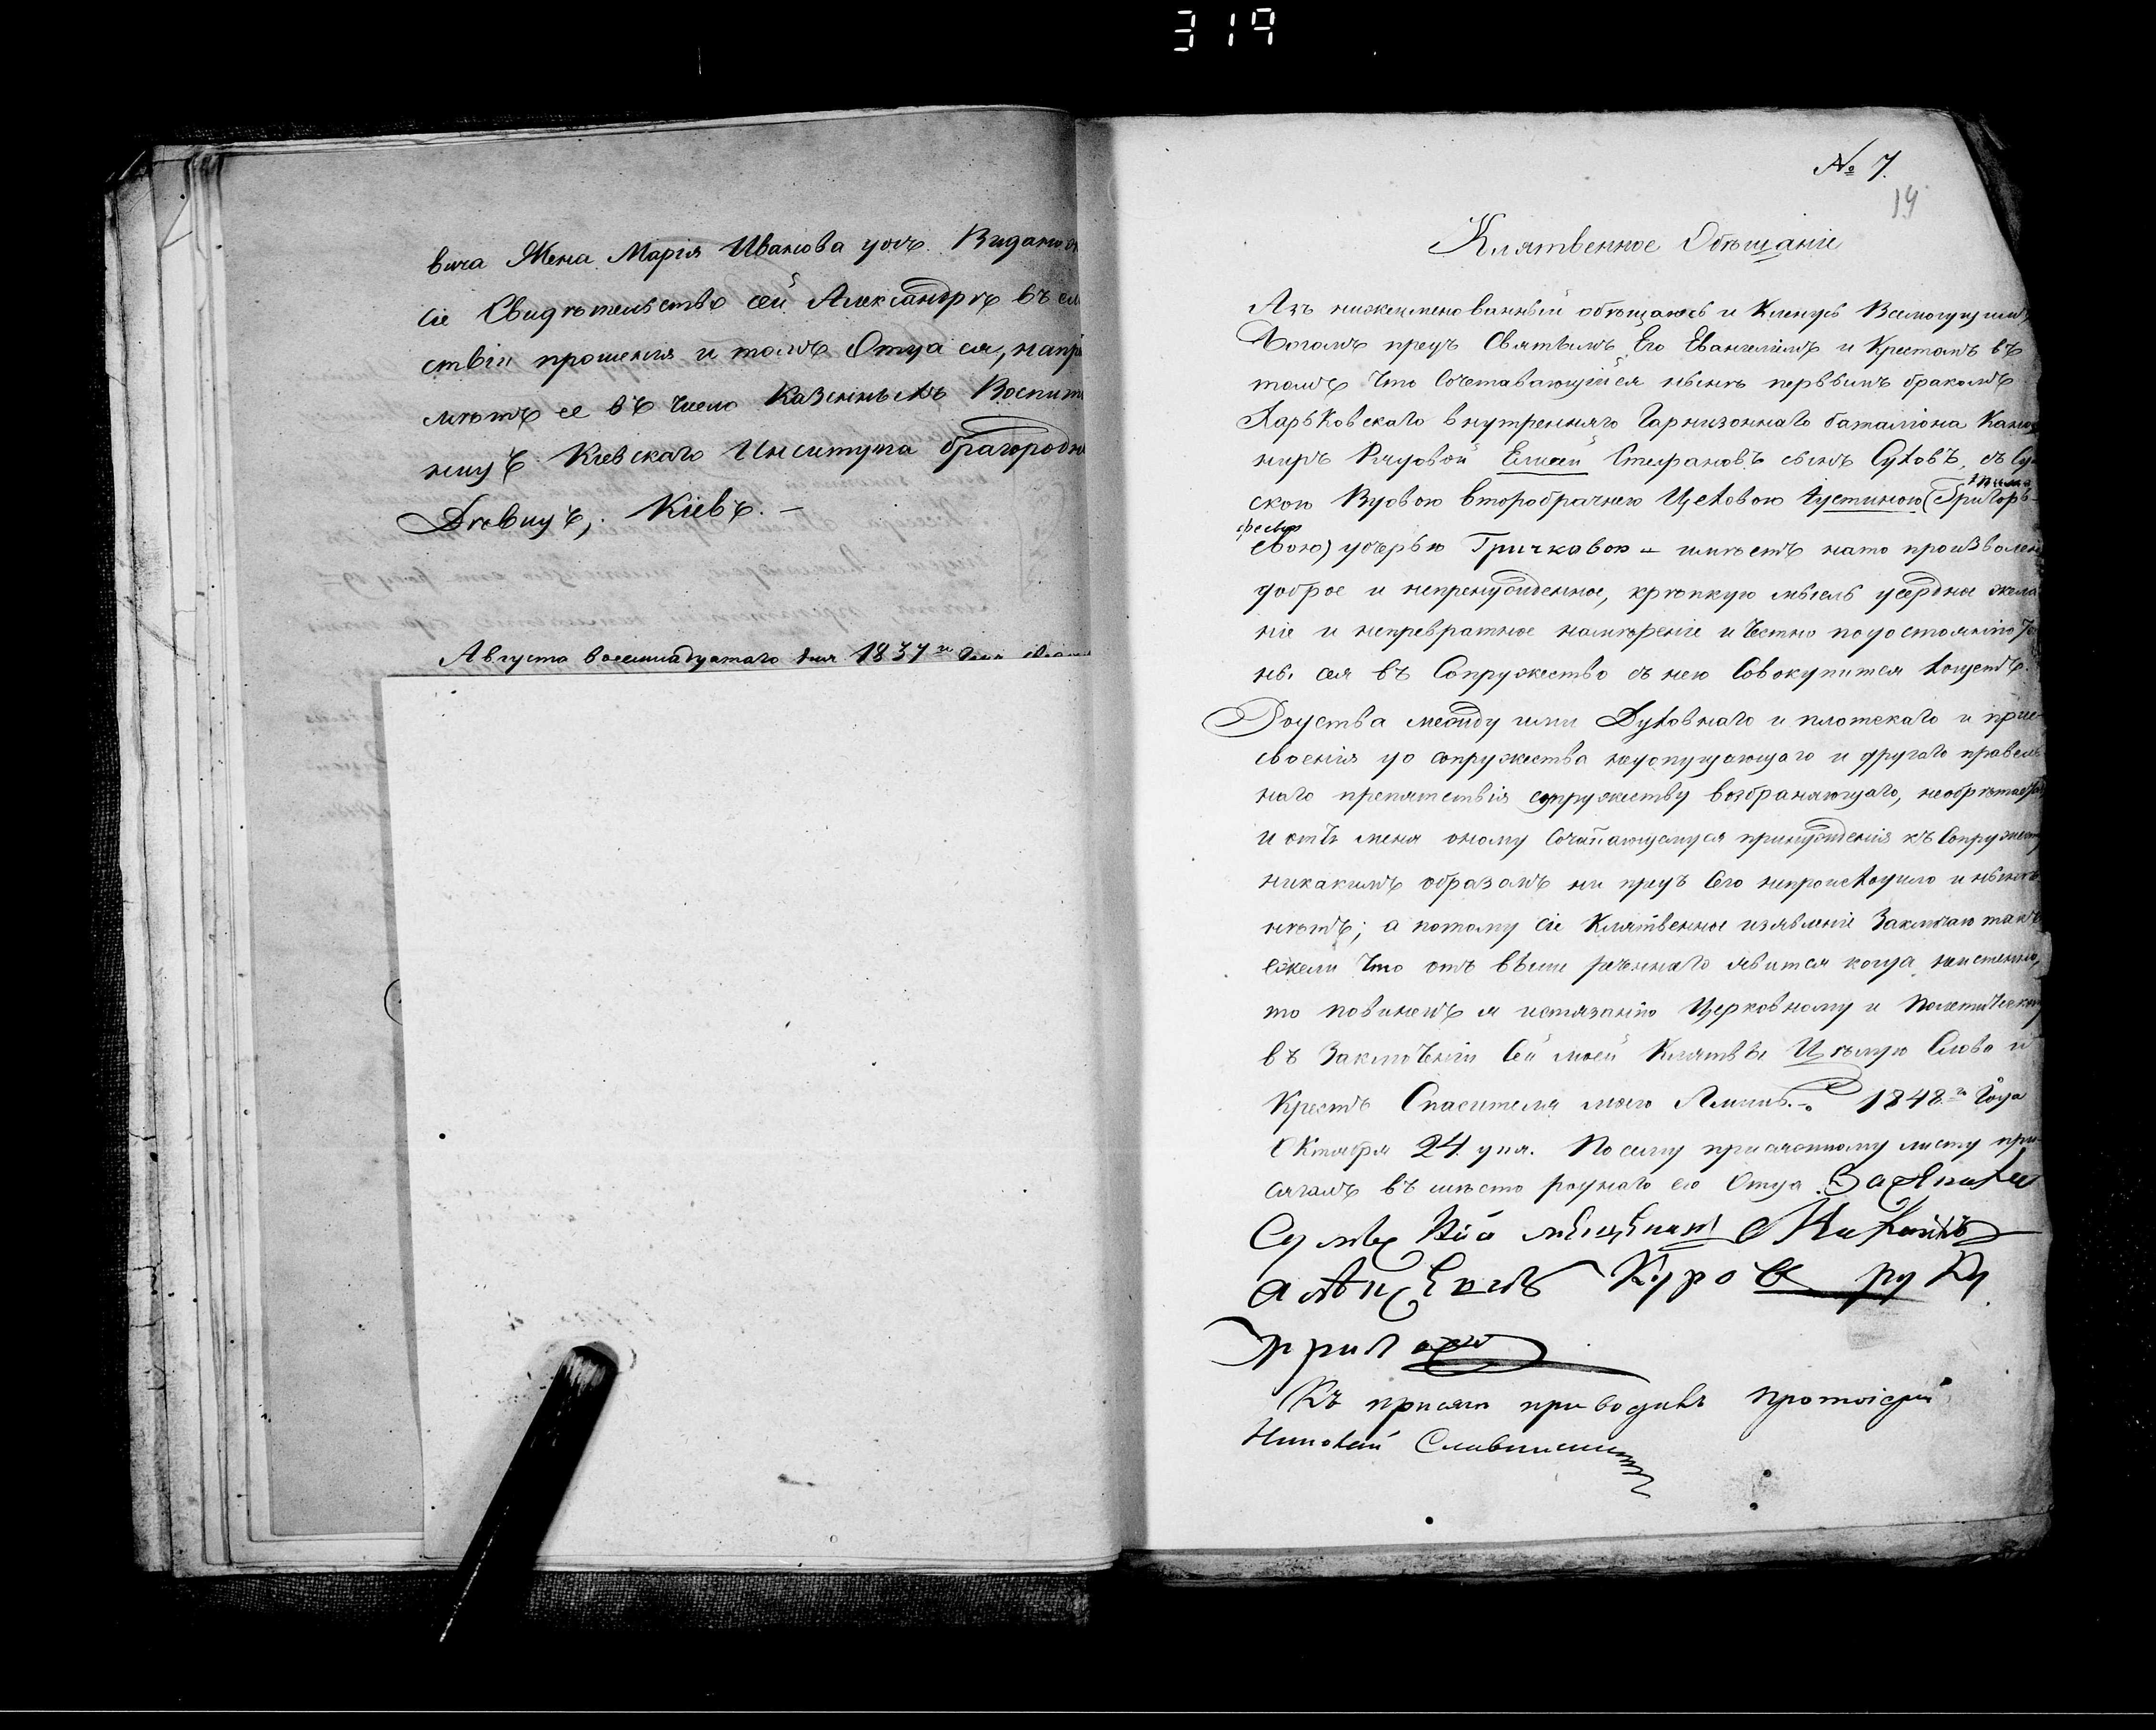 319
вича Жена Марія Иванова дочь. Видано
сіе Свидѣтельство сей Александрѣ въ
ствіи прошенія и томъ Отца ея,
мѣтъ ее въ число Казенныхъ
ницъ Кіевскаго Инситута благородн
Дѣвицъ, Кіевъ. —
Августа восемнадцатаго дня 1837го Года
№ 7.
19
Клятвенное Обѣщаніе
Азъ нижеименованный обѣщаюсь и Кленусь Всемогущим
Богомъ предъ Святымъ Его Евангеліемъ и Крестомъ въ
томъ что Сочетавающійся нынѣ первымъ бракомъ
Харьковскаго внутренняго Гарнизоннаго баталіона
ниръ Рядовой Елисей Стефановъ сынъ Суховъ, съ
скою Вдовою второбрачнею Цеховою Іустиною (Григорь-
евою) дочерью Гричковою — имѣетъ на то произволен
доброе и непренужденное, крѣпкую мысль усердное жела
ніе и непревратное намѣреніе и честно по достоянію
нь. ся въ Сопружество съ нею Совокупится хощетъ.
Родства между ими Духовнаго и плотскаго и при-
своенія до сопружества недопущающаго и другаго правель
наго препятствія супружеству возбраняющаго,
и отъ меня оному принужденія къ Сопружест
никакимъ образомъ ни предъ сего непроисходило и нынѣ
нѣтъ; а потому сіе Клятвенное изявленіе Заключаю такъ
ежели что отъ выше реченнаго явится когда неистенно,
то повиненъ я истязанію Церковному и
въ Заключеніи Сей моей Клятвы Цѣлую Слова и
Крестъ Спасителя моего Аминь. 1848го Года
Октября 24 дня. По сему присяжному листу при-
сягалъ въ мѣсто роднаго его Отца
руку
прилож
Къ присяге приводилъ протоіерей